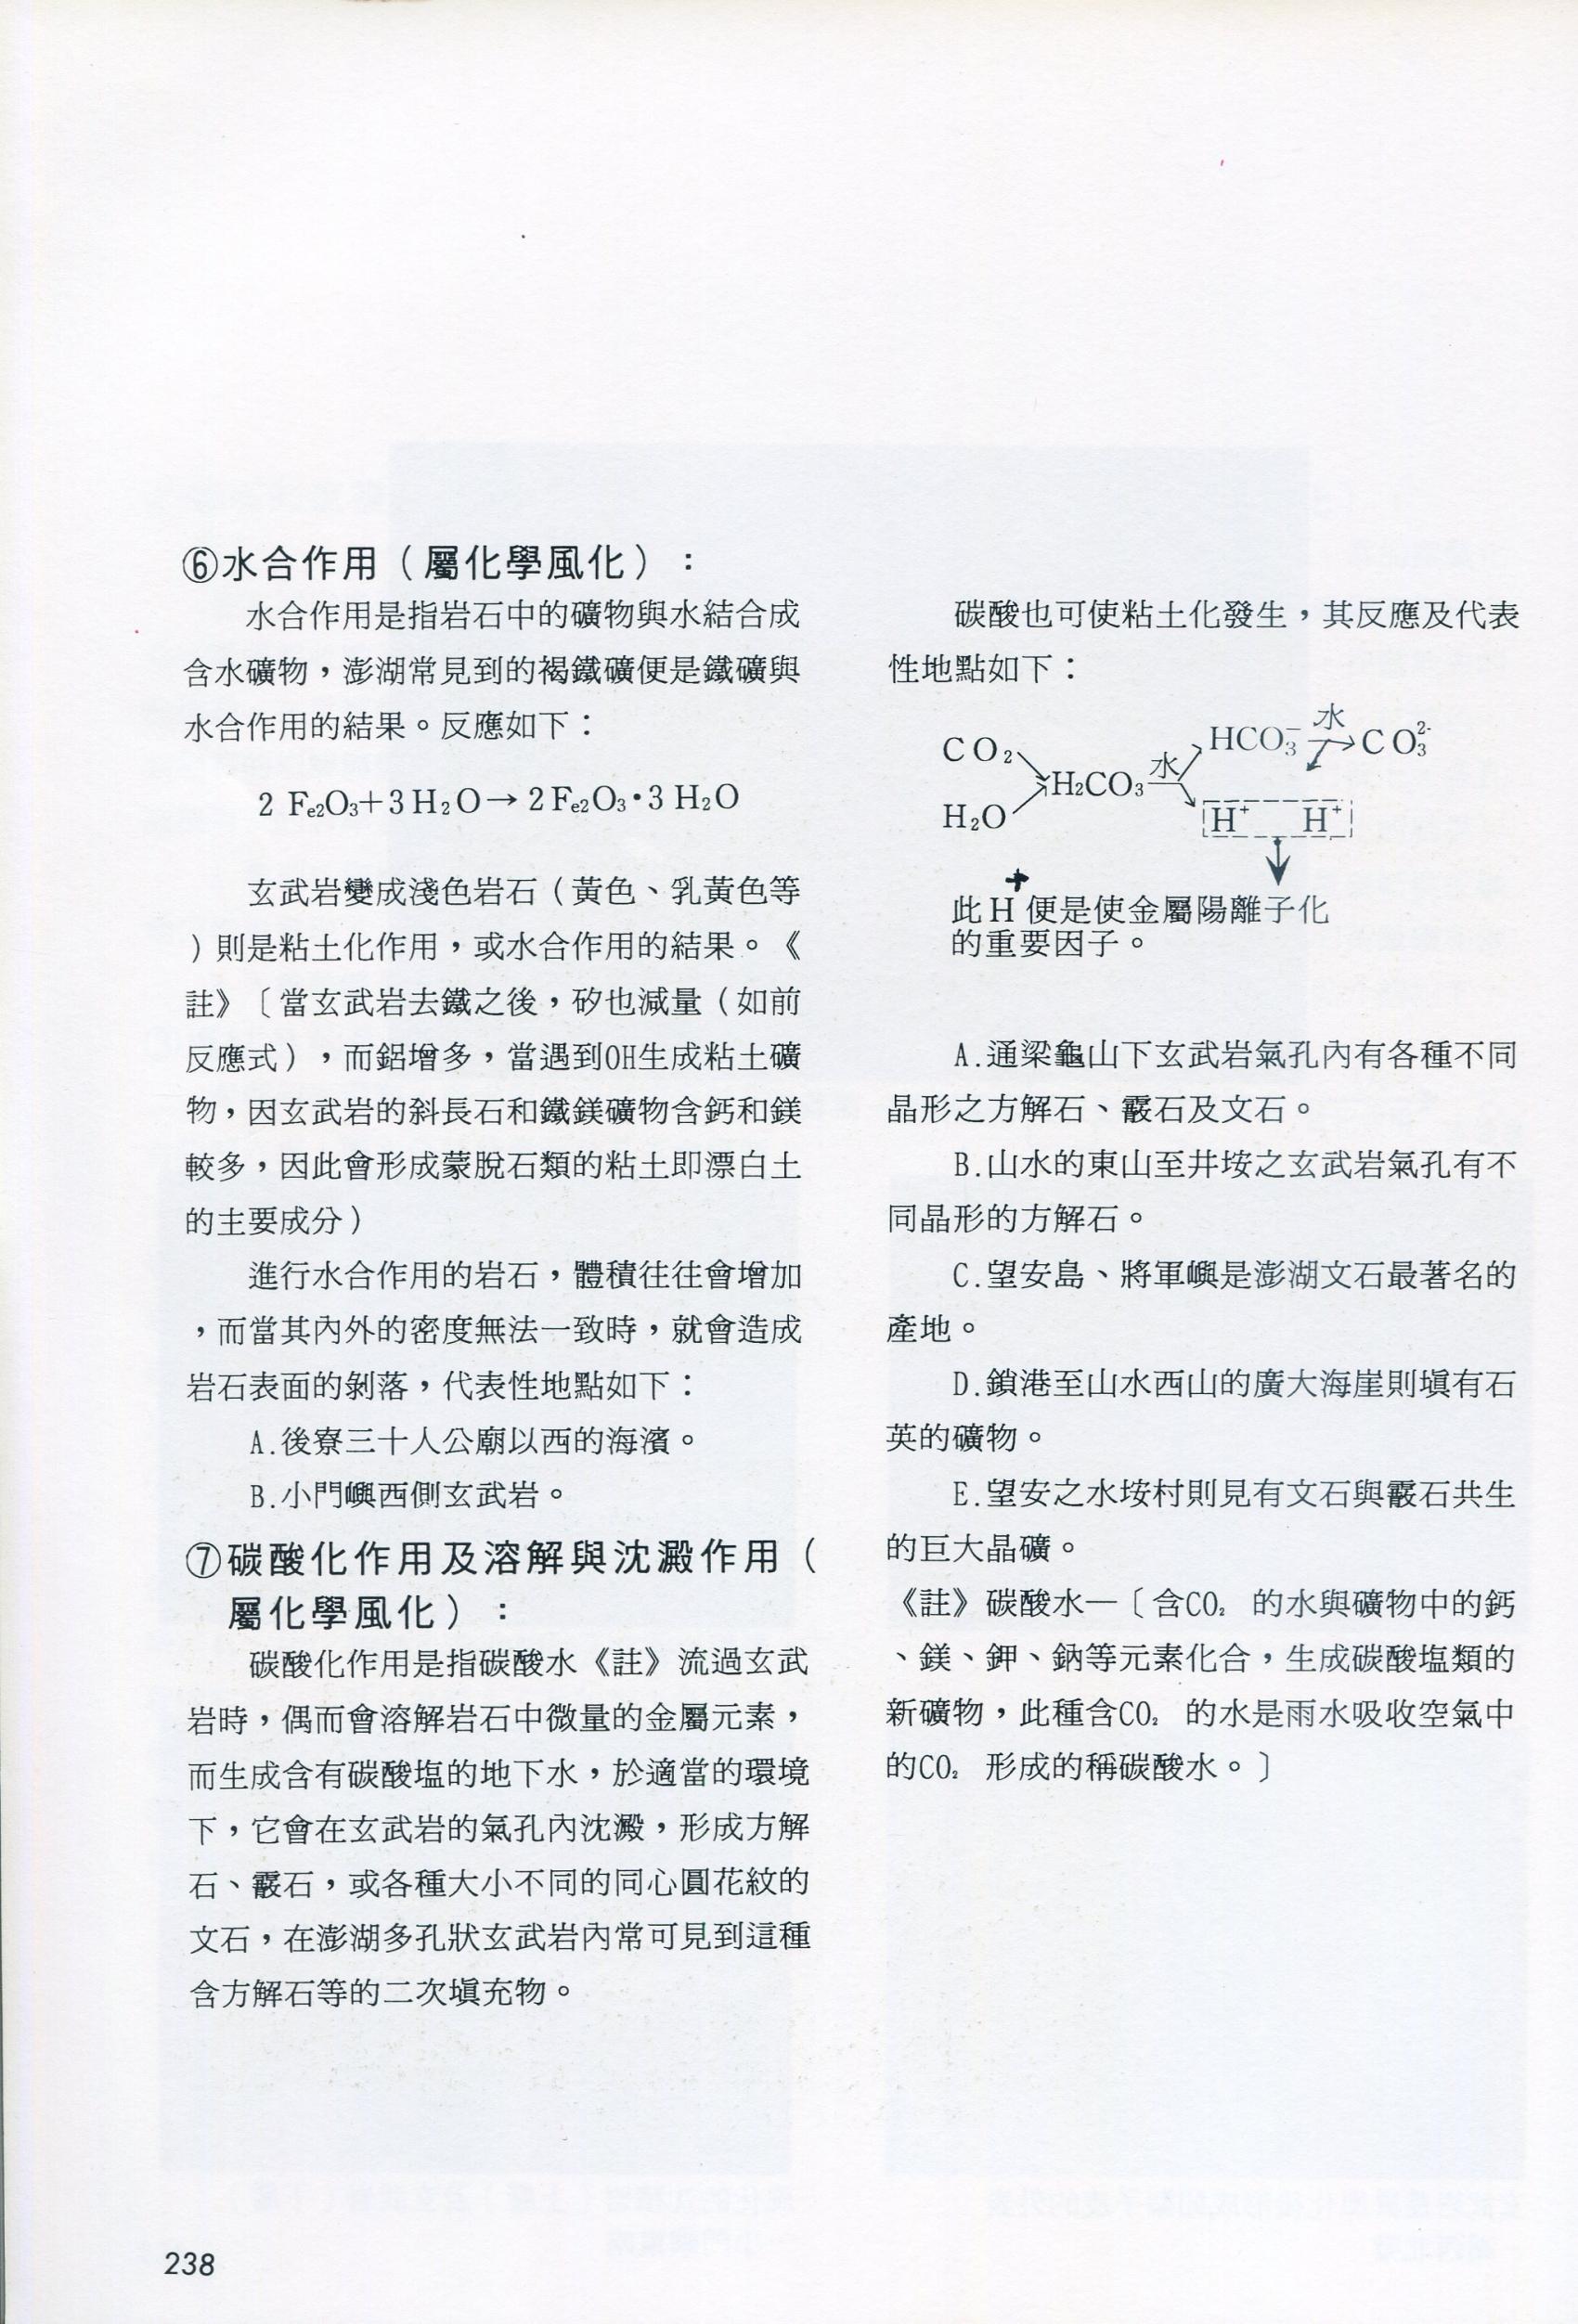 ⑥水合作用（屬化學風化）：
水合作用是指岩石中的礦物與水結合成
含水礦物，澎湖常見到的褐鐵礦便是鐵礦與
水合作用的結果。反應如下：
2 Fe2O3+3H2O→2Fe2O3•3H2O
玄武岩變成淺色岩石（黃色、乳黃色等
）則是粘土化作用，或水合作用的結果。《
註》〔當玄武岩去鐵之後，矽也減量（如前
反應式），而鋁增多，當遇到OH生成粘土礦
物，因玄武岩的斜長石和鐵鎂礦物含鈣和鎂
較多，因此會形成蒙脫石類的粘土即漂白土
的主要成分）
進行水合作用的岩石，體積往往會增加
，而當其內外的密度無法一致時，就會造成
岩石表面的剝落，代表性地點如下：
A.後寮三十人公廟以西的海濱。
B.小門嶼西側玄武岩。
⑦碳酸化作用及溶解與沈澱作用（
屬化學風化）：
碳酸化作用是指碳酸水《註》流過玄武
岩時，偶而會溶解岩石中微量的金屬元素，
而生成含有碳酸塩的地下水，於適當的環境
下，它會在玄武岩的氣孔內沈澱，形成方解
石、霰石，或各種大小不同的同心圓花紋的
文石，在澎湖多孔狀玄武岩內常可見到這種
含方解石等的二次填充物。
碳酸也可使粘土化發生，其反應及代表
性地點如下：
CO2
H2O
H2CO3
水
HCO3⁻
水
CO3²⁻
H⁺ H⁺
此H⁺便是使金屬陽離子化
的重要因子。
A.通梁龜山下玄武岩氣孔內有各種不同
晶形之方解石、霰石及文石。
B.山水的東山至井垵之玄武岩氣孔有不
同晶形的方解石。
C.望安島、將軍嶼是澎湖文石最著名的
產地。
D.鎖港至山水西山的廣大海崖則填有石
英的礦物。
E.望安之水垵村則見有文石與霰石共生
的巨大晶礦。
《註》碳酸水—〔含CO2 的水與礦物中的鈣
、鎂、鉀、鈉等元素化合，生成碳酸塩類的
新礦物，此種含CO2 的水是雨水吸收空氣中
的CO2 形成的稱碳酸水。〕
238